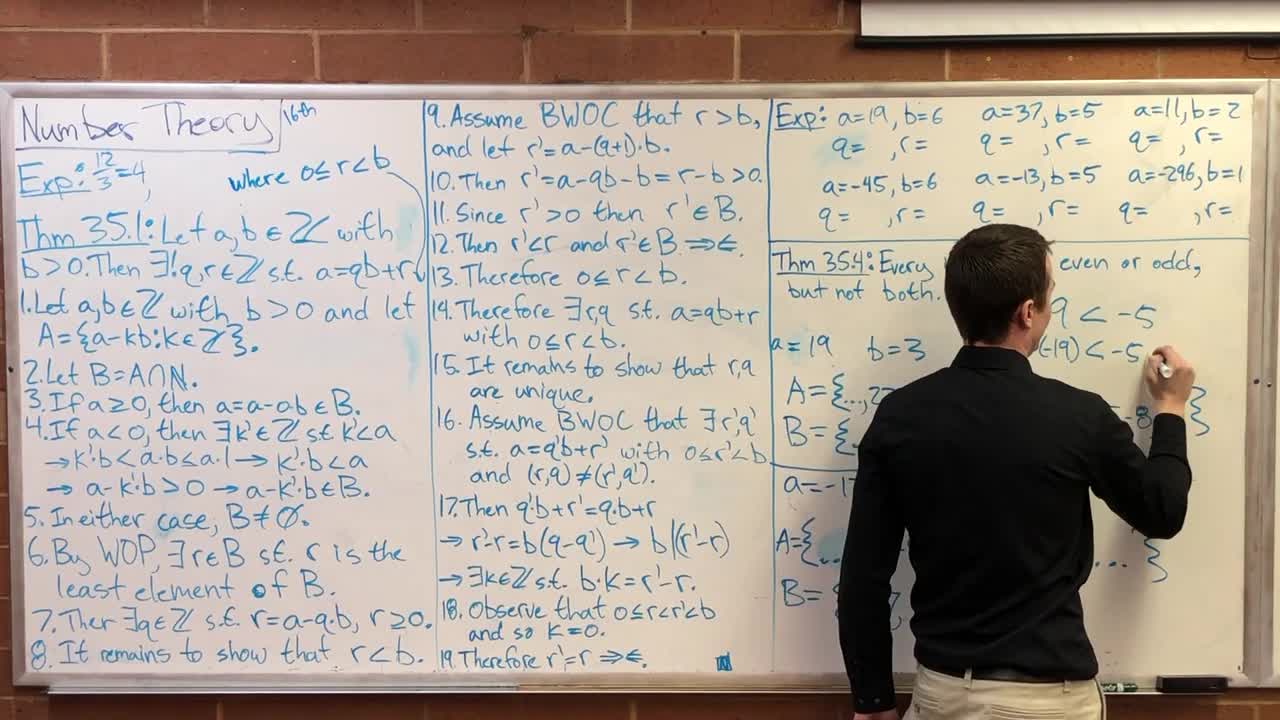 Number Theory 16th
Exp: 12/3=4,
where 0≤r<b
Thm 35.1: Let a,b∈ℤ with
b>0. Then ∃!q,r∈ℤ s.t. a=qb+r
1. Let a,b∈ℤ with b>0 and let
A={a-kb:k∈ℤ}.
2. Let B=A∩ℕ.
3. If a≥0, then a=a-0b∈B.
4. If a<0, then ∃k'∈ℤ s.t. k'<a
→k'·b<a·b≤a·1→k'·b<a
→a-k'·b>0→a-k'·b∈B.
5. In either case, B≠∅.
6. By WOP, ∃r∈B s.t. r is the
least element of B.
7. Then ∃q∈ℤ s.t. r=a-q·b, r≥0.
8. It remains to show that r<b.
9. Assume BWOC that r>b,
and let r'=a-(q+1)·b.
10. Then r'=a-qb-b=r-b>0.
11. Since r'>0 then r'∈B.
12. Then r'<r and r'∈B ⇒⇐.
13. Therefore 0≤r<b.
14. Therefore ∃r,q s.t. a=qb+r
with 0≤r<b.
15. It remains to show that r,q
are unique.
16. Assume BWOC that ∃r',q'
s.t. a=q'b+r' with 0≤r'<b
and (r,q)≠(r',q').
17. Then q'·b+r'=q·b+r
→r'-r=b(q-q')→b|(r'-r)
→∃k∈ℤ s.t. b·k=r'-r.
18. Observe that 0≤r<r'<b
and so k=0.
19. Therefore r'=r ⇒⇐.
Exp: a=19, b=6 a=37, b=5 a=11, b=2
q= , r= q= , r= q= , r=
a=-45, b=6 a=-13, b=5 a=-296, b=1
q= , r= q= , r= q= , r=
Thm 35.4: Every even or odd,
but not both.
9 < -5
a=19 b=3 (-19) < -5
A={..., }
B={
a=-17
A={... ... }
B=